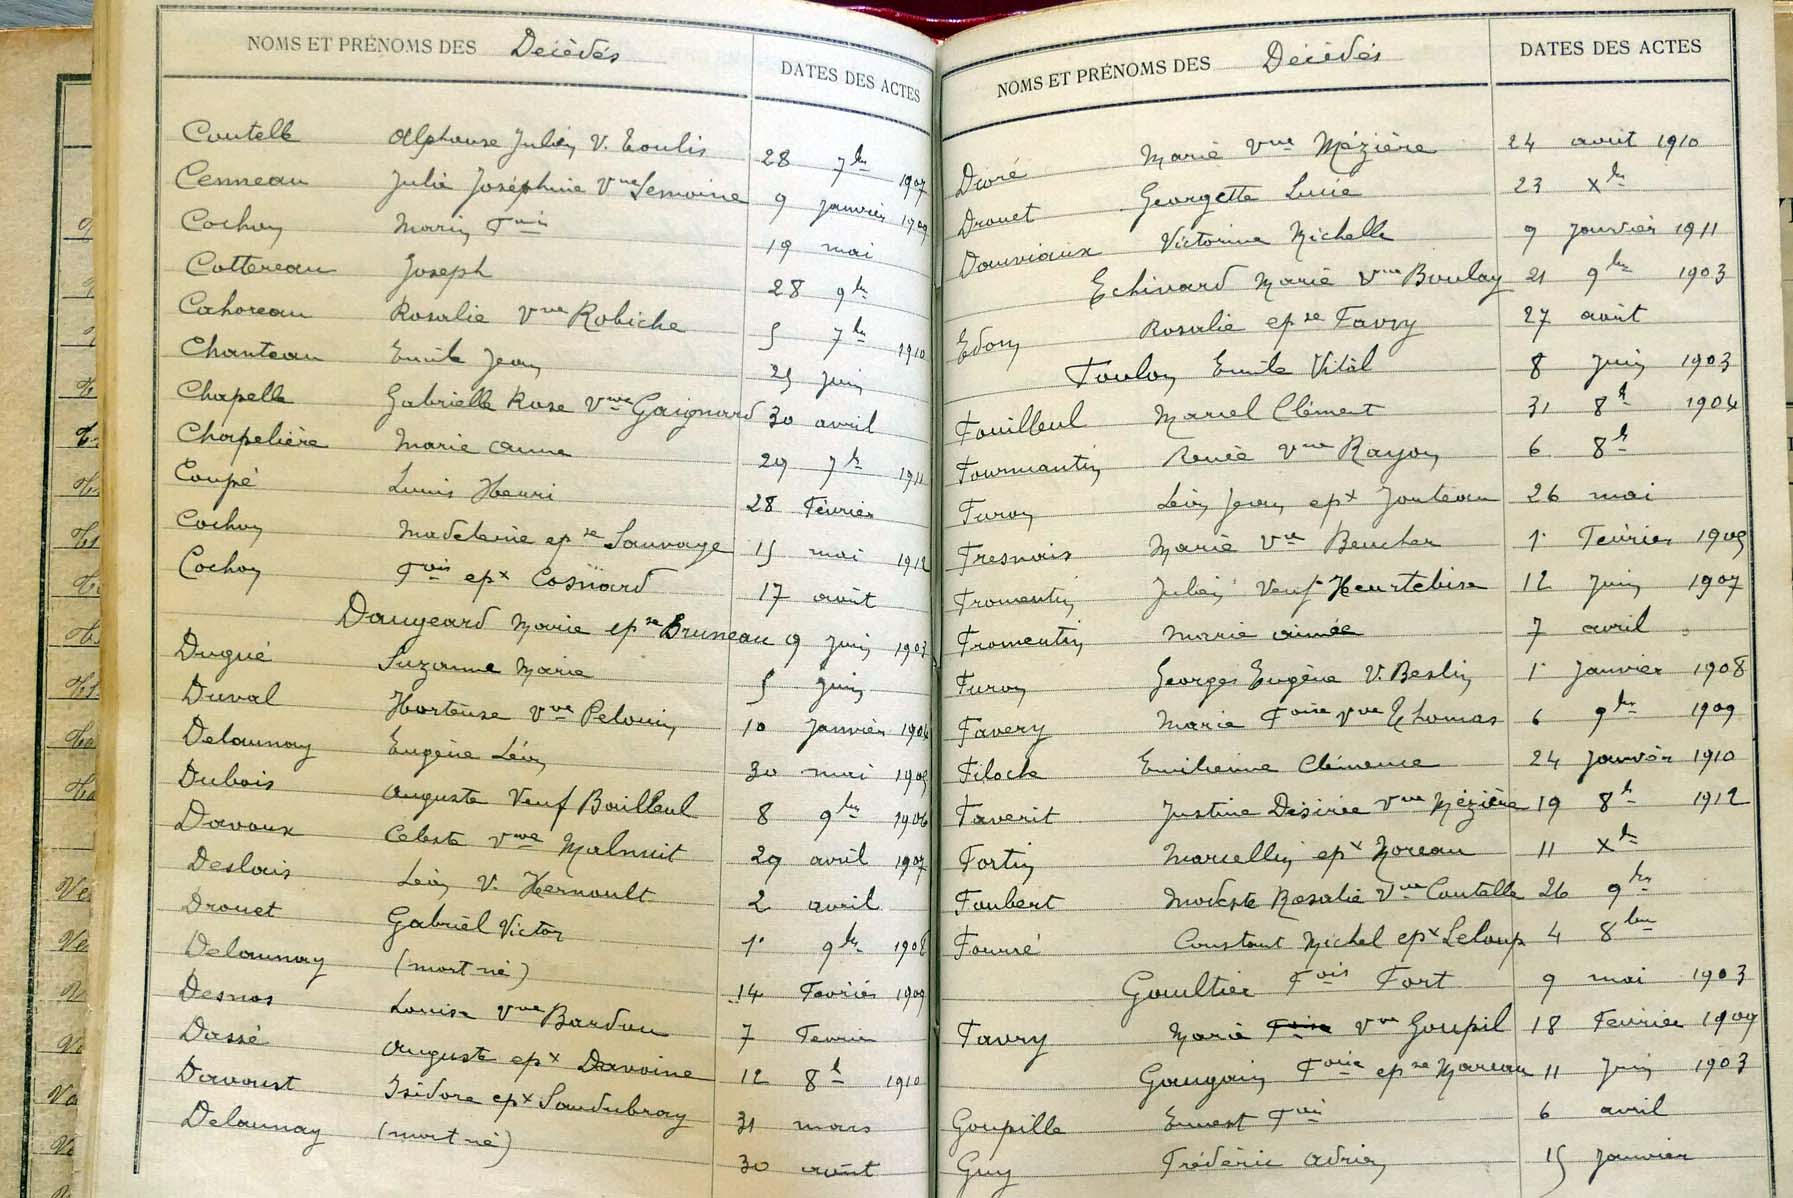 NOMS ET PRÉNOMS DES Décédés DATES DES ACTES
Coutelle Alphonse Julien V. Toulis 28 7bre 1907
Cenneau Julie Joséphine Vve Lemoine 9 janvier 1909
Cochon Marin Fois 19 mai
Cottereau Joseph 28 9bre
Cahoreau Rosalie Vve Robiche 5 7bre 1910
Chanteau Emile Jean 25 juin
Chapelle Gabrielle Rose Vve Gaignard 30 avril
Chapelière Marie Anne 29 7bre 1911
Coupé Louis Henri 28 Février
Cochon Madeleine epse Sauvage 15 mai 1912
Cochon Fois epx Cosnard 17 août
Daugeard Marie epse Bruneau 9 juin 1903
Dugué Suzanne Marie 5 juin
Duval Hortense Vve Pelouin 10 Janvier 1904
Delaunay Eugène Léon 30 mai 1905
Dubois Auguste Veuf Bouilleul 8 9bre 1906
Davoux Céleste Vve Malnuit 29 avril 1907
Deslais Léon V. Hernoult 2 avril
Drouet Gabriel Victor 1er 9bre 1908
Delaunay (mort né) 14 Février 1909
Desnos Louise Vve Bardou 7 Février
Dassé Auguste epx Davoine 12 8bre 1910
Davoust Isidore epx Landubray 31 mars
Delaunay (mort né) 30 août
NOMS ET PRÉNOMS DES Décédés DATES DES ACTES
Doré Marie Vve Mézière 24 août 1910
Drouet Georgette Lucie 23 Xbre
Douviaux Victorine Michelle 9 Janvier 1911
Echivard Marie Vve Boulay 21 9bre 1903
Edon Rosalie epse Favry 27 août
Foulon Emile Vital 8 juin 1903
Fouilleul Marcel Clément 31 8bre 1904
Fourmantin Renée Vve Rayon 6 8bre
Furon Léon Jean epx Jouteau 26 mai
Fresnais Marie Vve Beucher 1er Février 1905
Fromentin Julien Veuf Heurtebise 12 juin 1907
Fromentin Marie Aimée 7 avril
Furon Georges Eugène V. Beslin 1er Janvier 1908
Favery Marie Foise Vve Thomas 6 9bre 1909
Filoche Emilienne Clémence 24 Janvier 1910
Faverit Justine Désirée Vve Mézière 19 8bre 1912
Fortin Marcellin epx Moreau 11 Xbre
Foubert Modeste Rosalie Vve Coutelle 26 9bre
Fourré Constant Michel epx Leloup 4 8bre
Gaultier Fois Fort 9 mai 1903
Favry Marie Foise Vve Goupil 18 Février 1909
Gougain Foise epse Mareau 11 juin 1903
Goupille Ernest Fois 6 avril
Guy Frédéric Adrien 15 Janvier